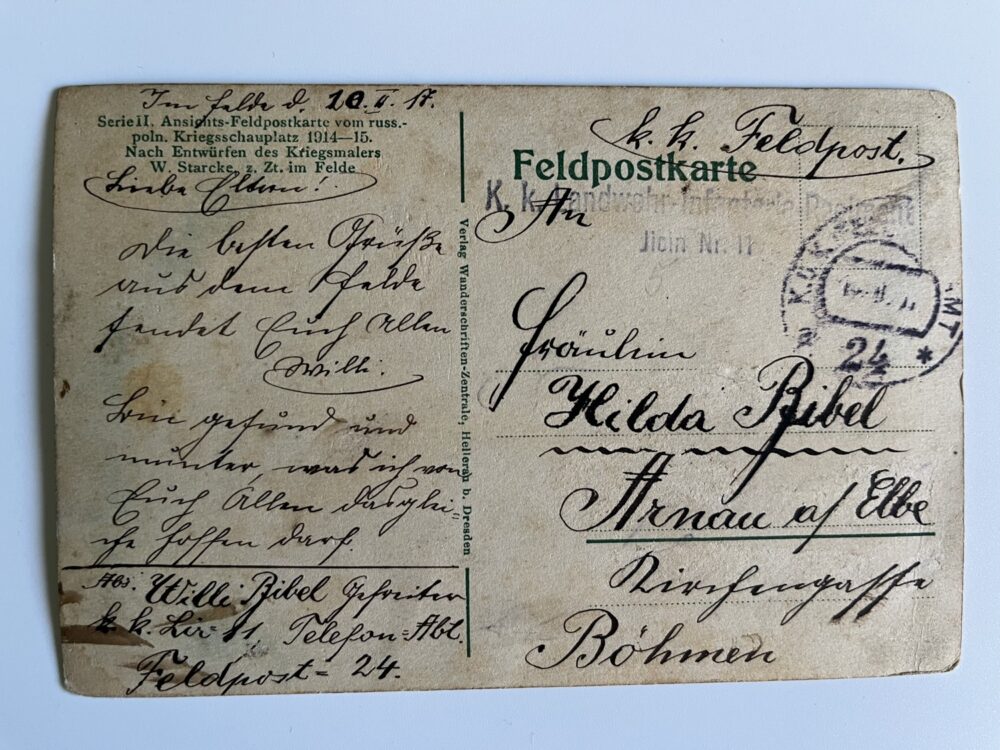 Im Felde d. 10. II. 17.
Serie II. Ansichts-Feldpostkarte vom russ.-
poln. Kriegsschauplatz 1914—15.
Nach Entwürfen des Kriegsmalers
W. Starcke, z. Zt. im Felde
Liebe Eltern!
Die besten Grüße
aus dem Felde
sendet Euch Allen
Willi.
Bin gesund und
munter, was ich von
Euch Allen dasglei-
che hoffen darf.
Abs: Willi Bibel Gefreiter
k. k. Lir 11, Telefon=Abt.
Feldpost - 24.
Verlag Wanderschriften-Zentrale, Hellerau b. Dresden
k. k. Feldpost.
Feldpostkarte
K. k. Landwehr-Infanterie Regiment
Jicin Nr. 11
An
K.u.K.
AMT
24 *
Fräulein
Hilda Bibel
Arnau a/ Elbe
Kirchengasse
Böhmen